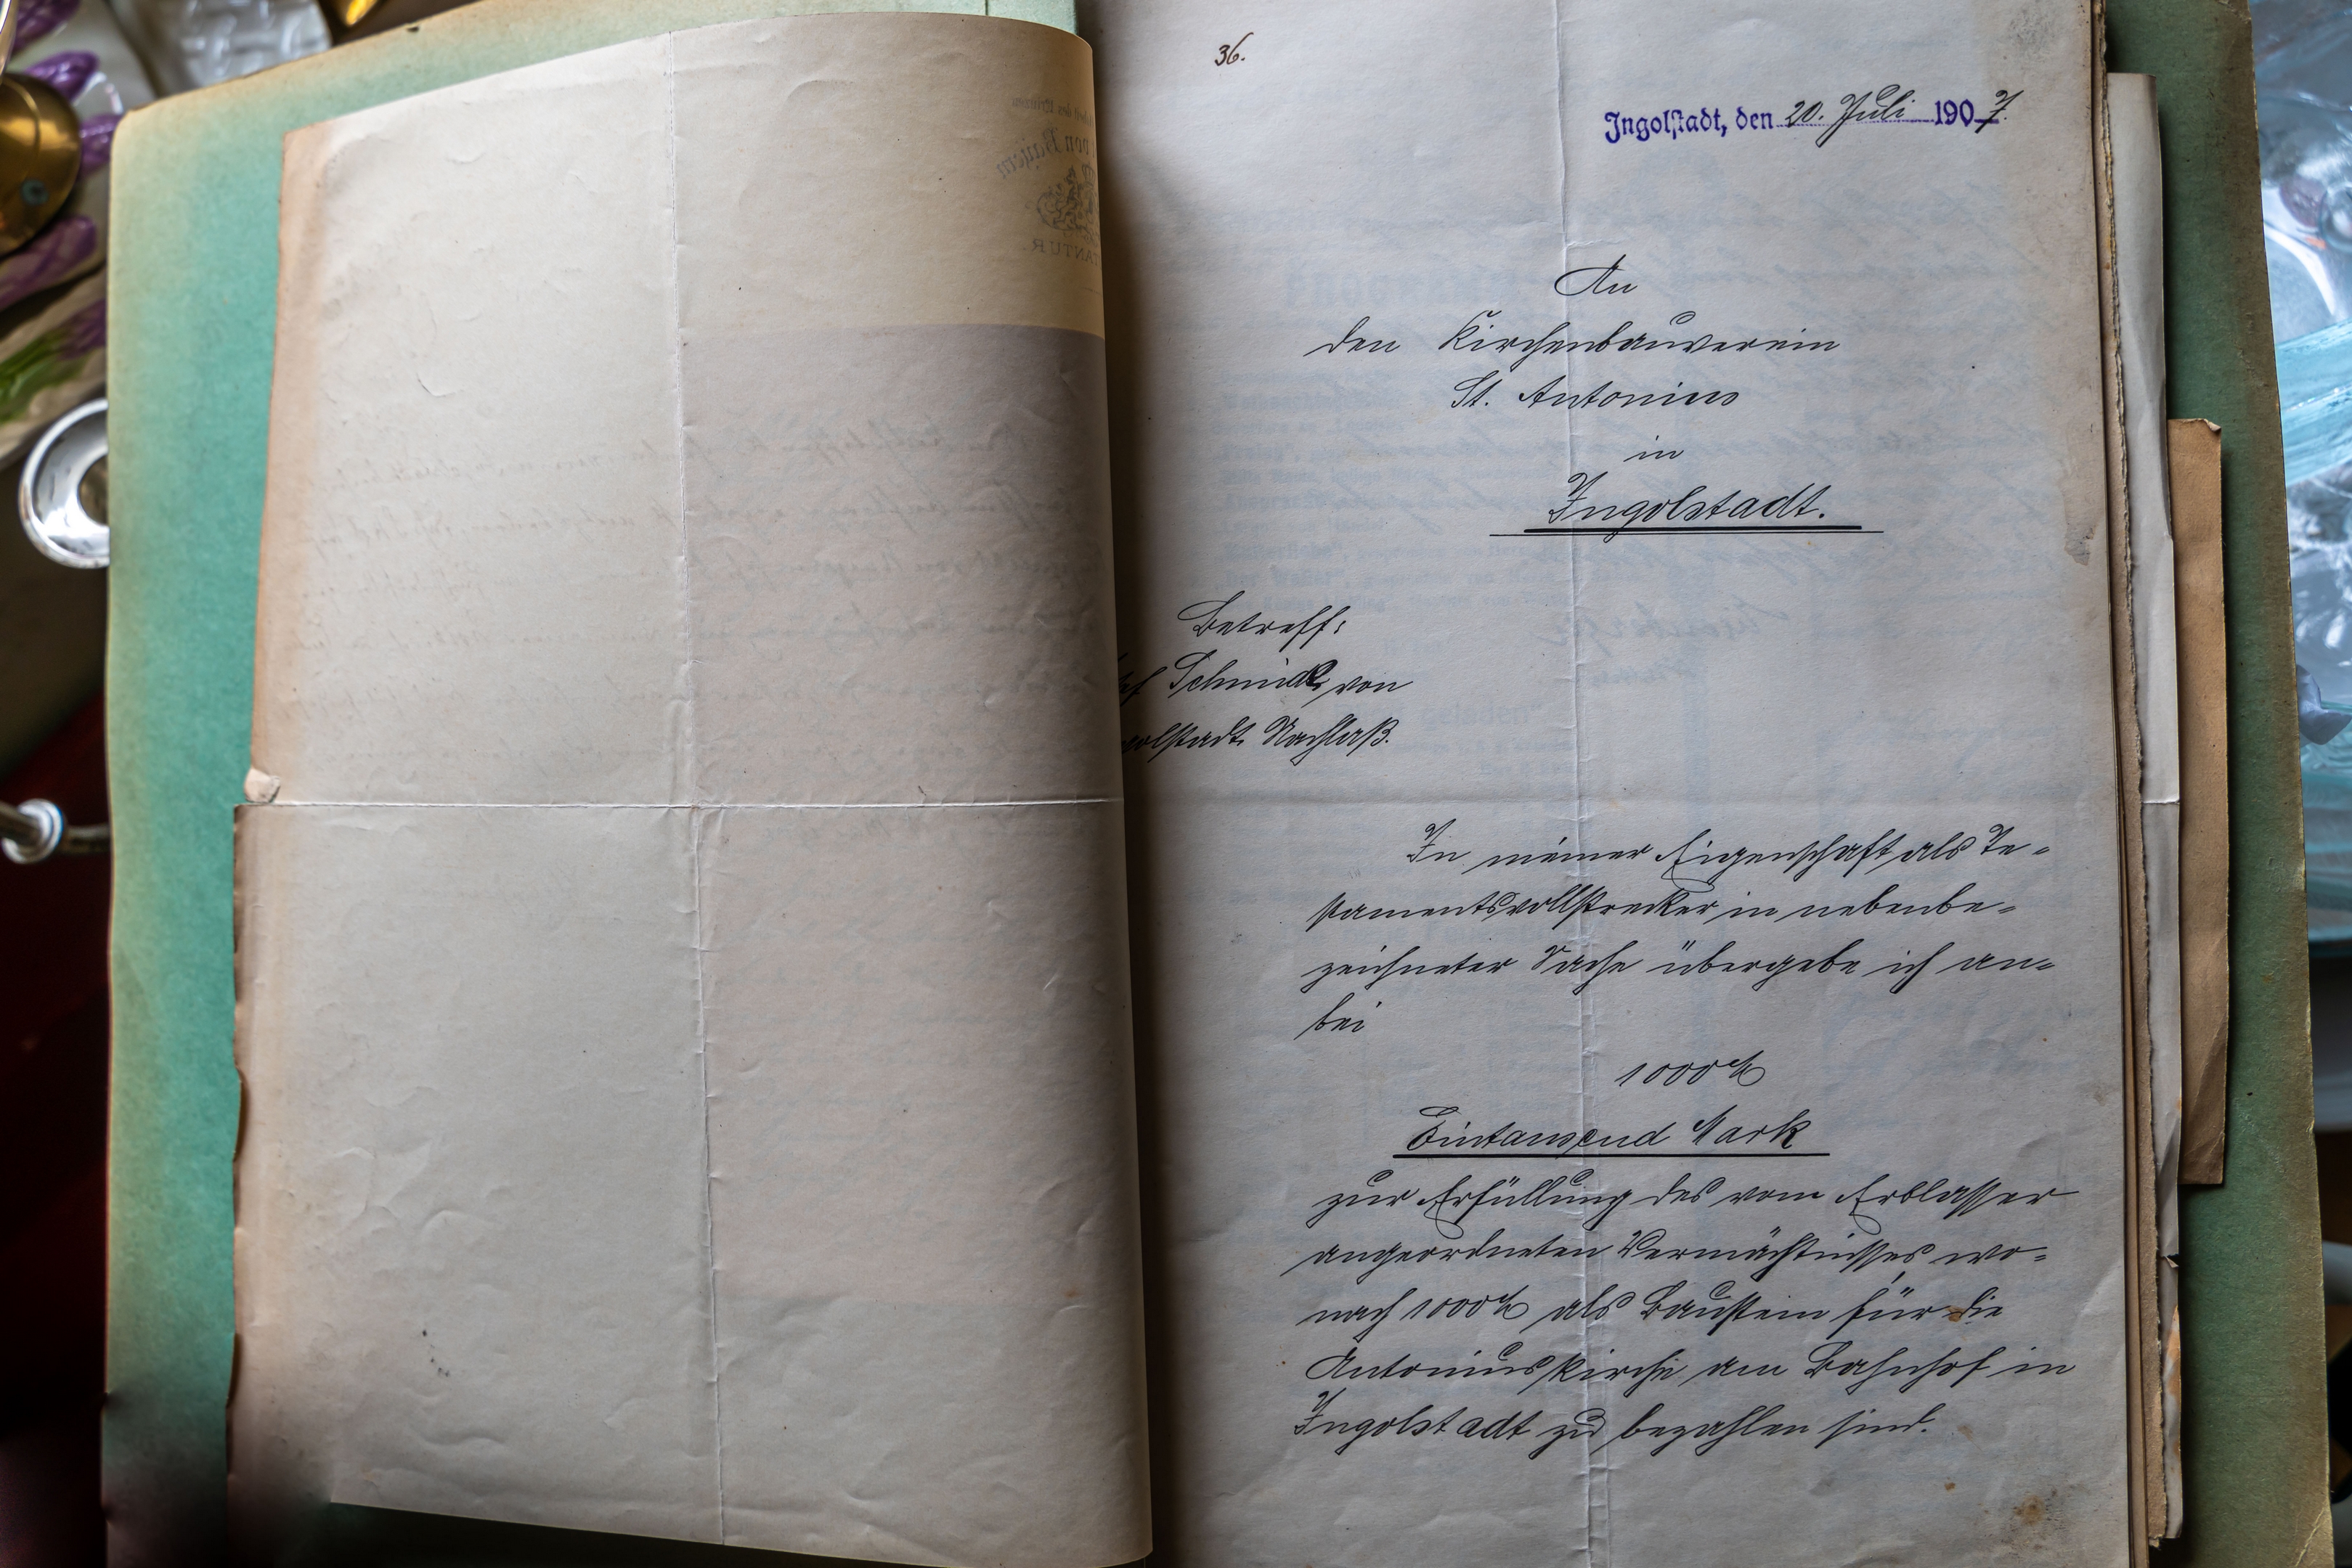 36.
Ingolstadt, den 20. Juli 1907.
An
den Kirchenbauverein
St. Antonius
in
Ingolstadt.
Betreff:
Schmidt, von
Nachlaß.
In meiner Eigenschaft als Te-
stamentsvollstrecker in nebenbe-
zeichneter Sache übergebe ich an-
bei
1000 ℳ
Eintausend Mark
zur Erfüllung des vom Erblasser
angeordneten Vermächtnisses wo-
nach 1000 ℳ als Baustein für die
Antoniuskirche am Bahnhof in
Ingolstadt zu bezahlen sind.
von Bayern